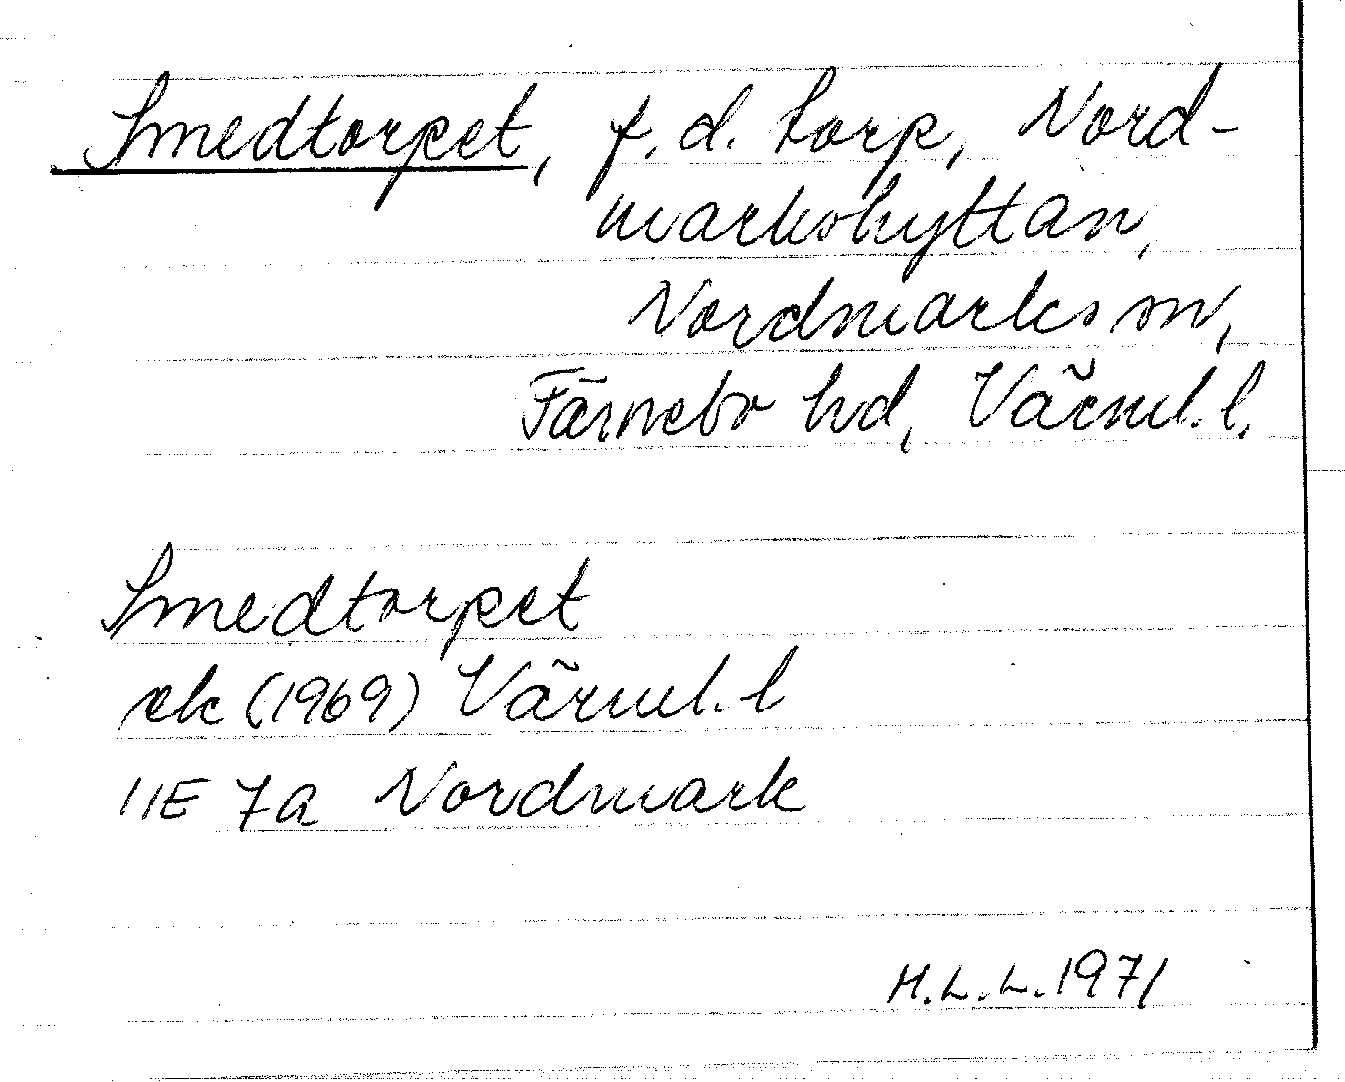 Smedtorpet, f.d. torp, Nord-
markshyttan,
Nordmarks sn,
Färnebo hd, Värml. l.
Smedtorpet
ek (1969) Värml. l
11E 7a Nordmark
M.L.L. 1971